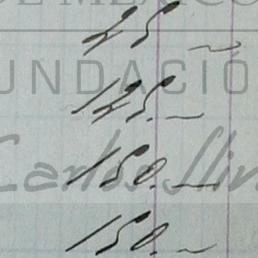 DE MÉXICO
25. —
FUNDACIÓN
125. —
Carlos Slim
150. —
150. —